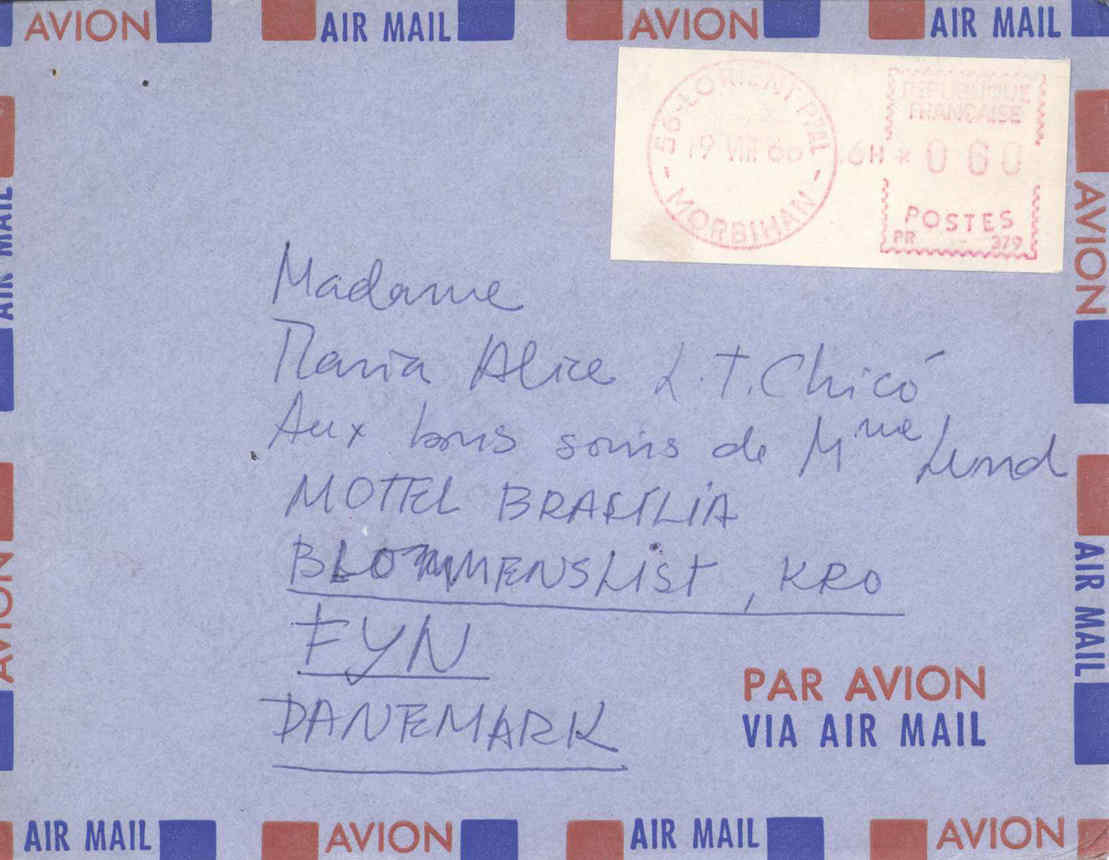 AVION AIR MAIL AVION AIR MAIL
56-LORIENT PPAL
19 VIII 66
MORBIHAN
6H *
REPUBLIQUE
FRANCAISE
0 60
POSTES
PR 379
Madame
Maria Alice L.T. Chicó
Aux bons soins de Mme Lund
MOTTEL BRASILIA
BLOMMENSLIST, KRO
FYN
DANEMARK
PAR AVION
VIA AIR MAIL
AIR MAIL
AVION
AVION
AIR MAIL
AIR MAIL AVION AIR MAIL AVION